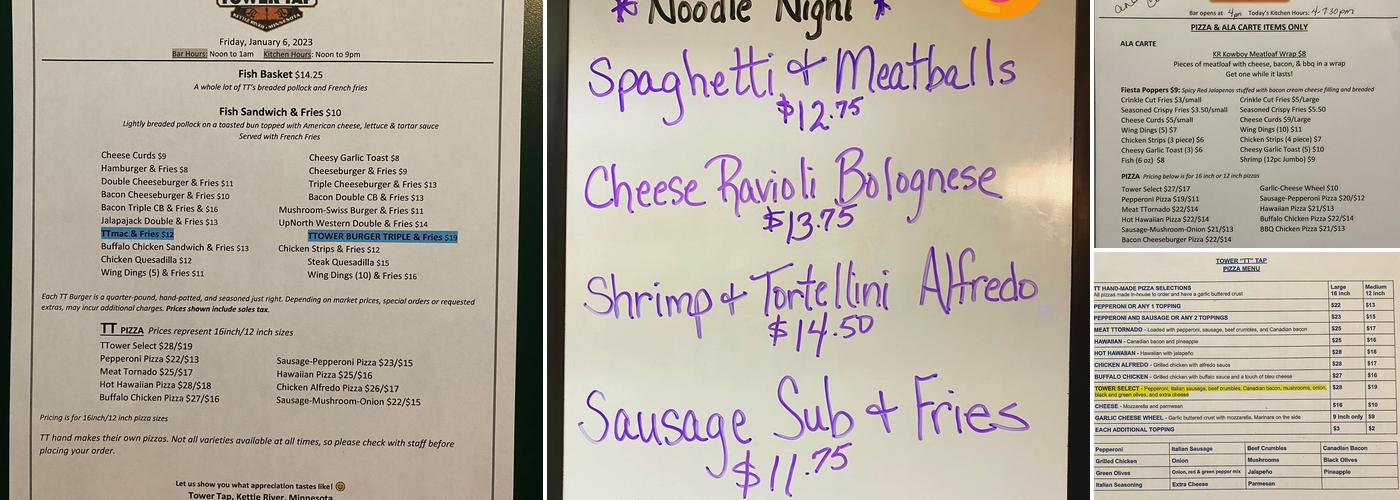 TOWER TAP
KETTLE RIVER, MINNESOTA
Friday, January 6, 2023
Bar Hours: Noon to 1am Kitchen Hours: Noon to 9pm
Fish Basket $14.25
A whole lot of TT's breaded pollock and French fries
Fish Sandwich & Fries $10
Lightly breaded pollock on a toasted bun topped with American cheese, lettuce & tartar sauce
Served with French Fries
Cheese Curds $9
Hamburger & Fries $8
Double Cheeseburger & Fries $11
Bacon Cheeseburger & Fries $10
Bacon Triple CB & Fries & $16
Jalapajack Double & Fries $13
TTmac & Fries $12
Buffalo Chicken Sandwich & Fries $13
Chicken Quesadilla $12
Wing Dings (5) & Fries $11
Cheesy Garlic Toast $8
Cheeseburger & Fries $9
Triple Cheeseburger & Fries $13
Bacon Double CB & Fries $13
Mushroom-Swiss Burger & Fries $11
UpNorth Western Double & Fries $14
TTOWER BURGER TRIPLE & Fries $19
Chicken Strips & Fries $12
Steak Quesadilla $15
Wing Dings (10) & Fries $16
Each TT Burger is a quarter-pound, hand-patted, and seasoned just right. Depending on market prices, special orders or requested
extras, may incur additional charges. Prices shown include sales tax.
TT PIZZA Prices represent 16inch/12 inch sizes
TTower Select $28/$19
Pepperoni Pizza $22/$13
Meat Tornado $25/$17
Hot Hawaiian Pizza $28/$18
Buffalo Chicken Pizza $27/$16
Sausage-Pepperoni Pizza $23/$15
Hawaiian Pizza $25/$16
Chicken Alfredo Pizza $26/$17
Sausage-Mushroom-Onion $22/$15
Pricing is for 16inch/12 inch pizza sizes
TT hand makes their own pizzas. Not all varieties available at all times, so please check with staff before
placing your order.
Let us show you what appreciation tastes like! 😊
Tower Tap, Kettle River, Minnesota
* Noodle Night *
Spaghetti & Meatballs
$12.75
Cheese Ravioli Bolognese
$13.75
Shrimp & Tortellini Alfredo
$14.50
Sausage Sub & Fries
$11.75
Bar opens at 4pm Today's Kitchen Hours: 4-7:30pm
PIZZA & ALA CARTE ITEMS ONLY
ALA CARTE
KR Kowboy Meatloaf Wrap $8
Pieces of meatloaf with cheese, bacon, & bbq in a wrap
Get one while it lasts!
Fiesta Poppers $9: Spicy Red Jalapenos stuffed with bacon cream cheese filling and breaded
Crinkle Cut Fries $3/small
Seasoned Crispy Fries $3.50/small
Cheese Curds $5/small
Wing Dings (5) $7
Chicken Strips (3 piece) $6
Cheesy Garlic Toast (3) $6
Fish (6 oz) $8
Crinkle Cut Fries $5/Large
Seasoned Crispy Fries $5.50
Cheese Curds $9/Large
Wing Dings (10) $11
Chicken Strips (4 piece) $7
Cheesy Garlic Toast (5) $10
Shrimp (12pc Jumbo) $9
PIZZA Pricing below is for 16 inch or 12 inch pizzas
Tower Select $27/$17
Pepperoni Pizza $19/$11
Meat TTornado $22/$14
Hot Hawaiian Pizza $22/$14
Sausage-Mushroom-Onion $21/$13
Bacon Cheeseburger Pizza $22/$14
Garlic-Cheese Wheel $10
Sausage-Pepperoni Pizza $20/$12
Hawaiian Pizza $21/$13
Buffalo Chicken Pizza $22/$14
BBQ Chicken Pizza $21/$13
TOWER "TT" TAP
PIZZA MENU
TT HAND-MADE PIZZA SELECTIONS Large Medium
All pizzas made in-house to order and have a garlic buttered crust 16 inch 12 inch
PEPPERONI OR ANY 1 TOPPING $22 $13
PEPPERONI AND SAUSAGE OR ANY 2 TOPPINGS $23 $15
MEAT TTORNADO - Loaded with pepperoni, sausage, beef crumbles, and Canadian bacon $25 $17
HAWAIIAN - Canadian bacon and pineapple $25 $16
HOT HAWAIIAN - Hawaiian with jalapeño $28 $18
CHICKEN ALFREDO - Grilled chicken with alfredo sauce $28 $17
BUFFALO CHICKEN - Grilled chicken with buffalo sauce and a touch of bleu cheese $27 $16
TOWER SELECT - Pepperoni, Italian sausage, beef crumbles, Canadian bacon, mushrooms, onion, $28 $19
black and green olives, and extra cheese
CHEESE - Mozzarella and parmesan $16 $10
GARLIC CHEESE WHEEL - Garlic buttered crust with mozzarella. Marinara on the side 9 inch only $9
EACH ADDITIONAL TOPPING $3 $2
Pepperoni Italian Sausage Beef Crumbles Canadian Bacon
Grilled Chicken Onion Mushrooms Black Olives
Green Olives Onion, red & green pepper mix Jalapeño Pineapple
Italian Seasoning Extra Cheese Parmesan